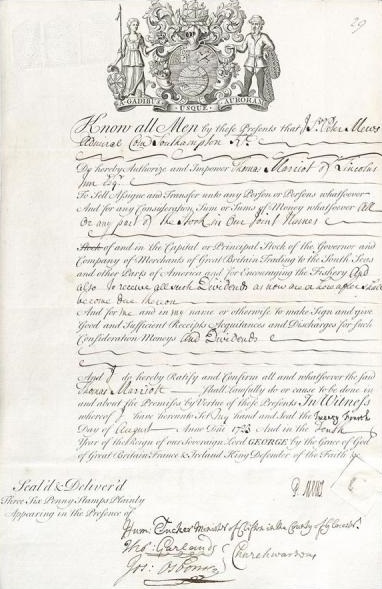 29
A GADIBUS USQUE AURORAM
Know all Men by these Presents that I Sr. Peter Mews
Southampton
Do hereby Authorize and Impower Thomas Marriot of Lincolns
Inn Esqr.
To Sell Assigne and Transfer unto any Person or Persons whatsoever
And for any Consideration Sum or Sums of Money whatsoever All
Or any part of the Stock in Our Joint Names
Stock of and in the Capital or Principal Stock of the Governor and
Company of Merchants of Great Britain Trading to the South Seas
and other Parts of America and for Encouraging the Fishery And
also to receive all such Dividends as now are or hereafter shall
become due thereon
And for me and in my name or otherwise to make Sign and give
Good and Sufficient Receipts Acquittances and Discharges for such
Consideration Moneys And Dividends
And I do hereby Ratify and Confirm all and whatsoever the said
Thomas Marriott Shall lawfully do or cause to be done in
and about the Premisses by Vertue of these Presents In Witness
whereof I have hereunto Set my hand and Seal the Twenty Fourth
Day of August Anno Dni 1723 And in the Tenth
Year of the Reign of our Sovereign Lord GEORGE by the Grace of God
of Great Britain France & Ireland King Defender of the Faith &c
Seal'd & Deliver'd
P. Mews
Three Six Penny Stamps Plainly
Appearing in the Presence of
Hum: Tucker Minister of Clifton in the County of
Tho: Garland
Churchwardens
Jos: Osborne